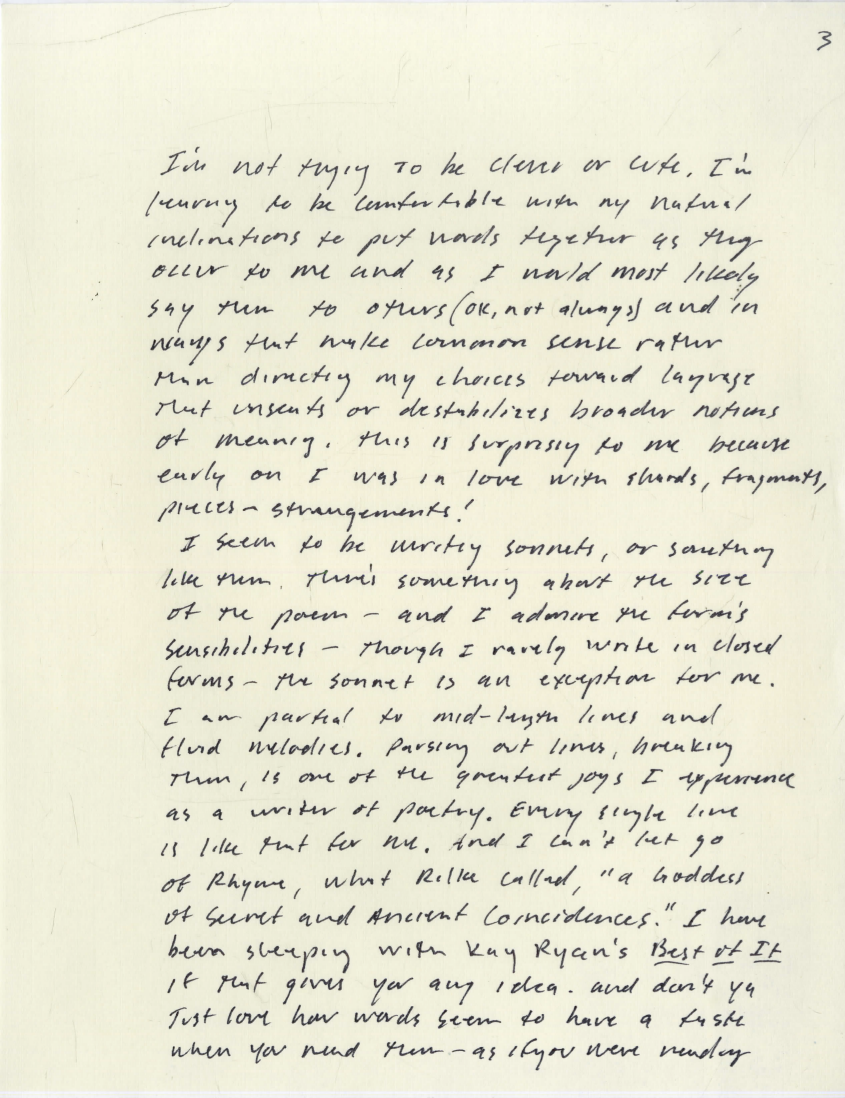 3
I'm not trying to be clever or cute. I'm
learning to be comfortable with my natural
inclinations to put words together as they
occur to me and as I would most likely
say them to others (OK, not always) and in
ways that make common sense rather
than directing my choices toward language
that unseats or destabilizes broader notions
of meaning. This is surprising to me because
early on I was in love with shards, fragments,
pieces - strangements!
I seem to be writing sonnets, or something
like them. There's something about the size
of the poem - and I admire the form's
sensibilities - though I rarely write in closed
forms - the sonnet is an exception for me.
I am partial to mid-length lines and
fluid melodies. Parsing out lines, breaking
them, is one of the greatest joys I experience
as a writer of poetry. Every single line
is like that for me. And I can't let go
of Rhyme, what Rilke called, "a Goddess
of Secret and Ancient Coincidences." I have
been sleeping with Kay Ryan's Best of It
if that gives you any idea. and don't ya
Just love how words seem to have a taste
when you need them - as if you were